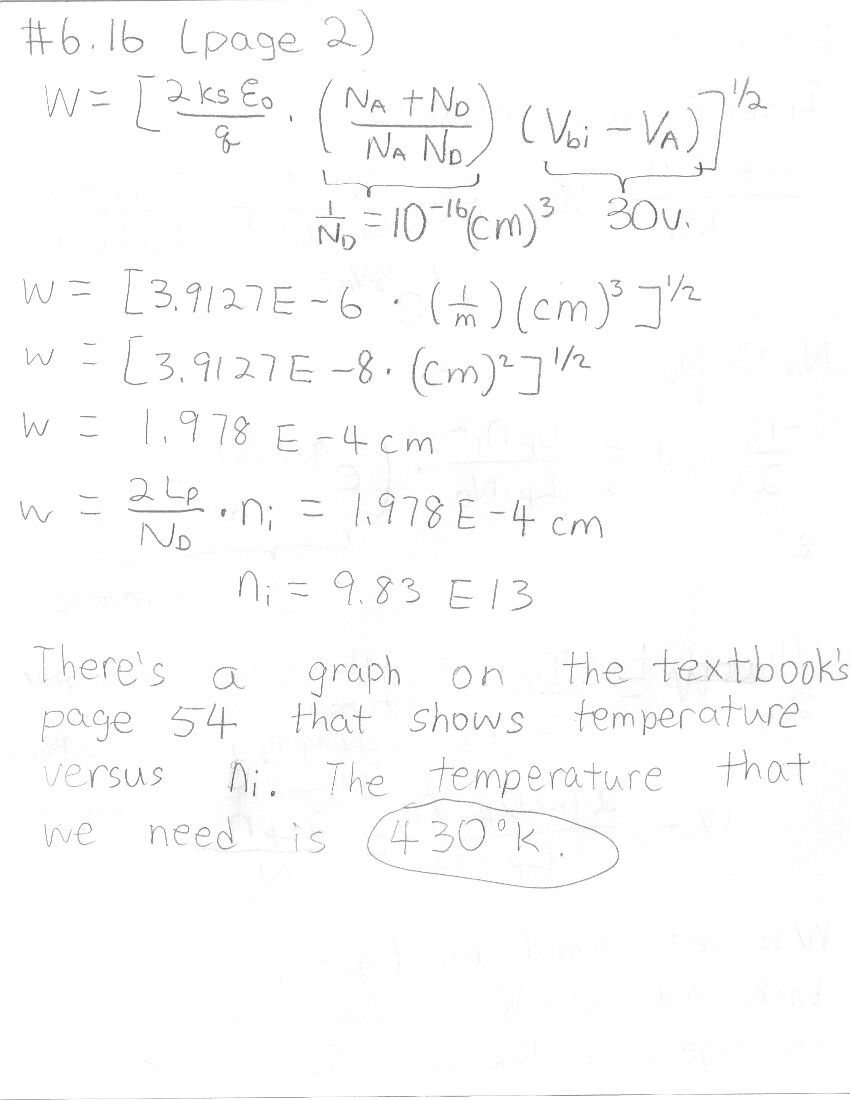 #6.16 (page 2)
W = [ 2 ks ε₀ / q · ( NA + ND / NA ND ) (Vbi − VA) ]^1/2
1/ND = 10^-16 (cm)^3 30v.
W = [3.9127E-6 · (1/m) (cm)^3 ]^1/2
W = [3.9127E-8 · (cm)^2 ]^1/2
W = 1.978 E-4 cm
W = 2 Lp / ND · ni = 1.978 E-4 cm
ni = 9.83 E13
There's a graph on the textbook's
page 54 that shows temperature
versus ni. The temperature that
we need is 430°K.